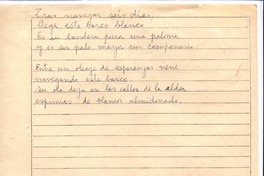 Tras navegar seis días,
llega este barco blanco
Es su bandera pura una paloma
y es su palo mayor un campanario.
Entre un oleaje de esperanzas viene
navegando este barco
Su ola deja en las calles de la aldea
espumas de blanco almidonado.